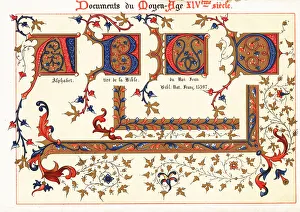 Documents du Moyen-Age XIVème siècle.
A B C D
Alphabet. tiré de la Bible du Roi Jean
Bibl. Nat. Franç. 15397.